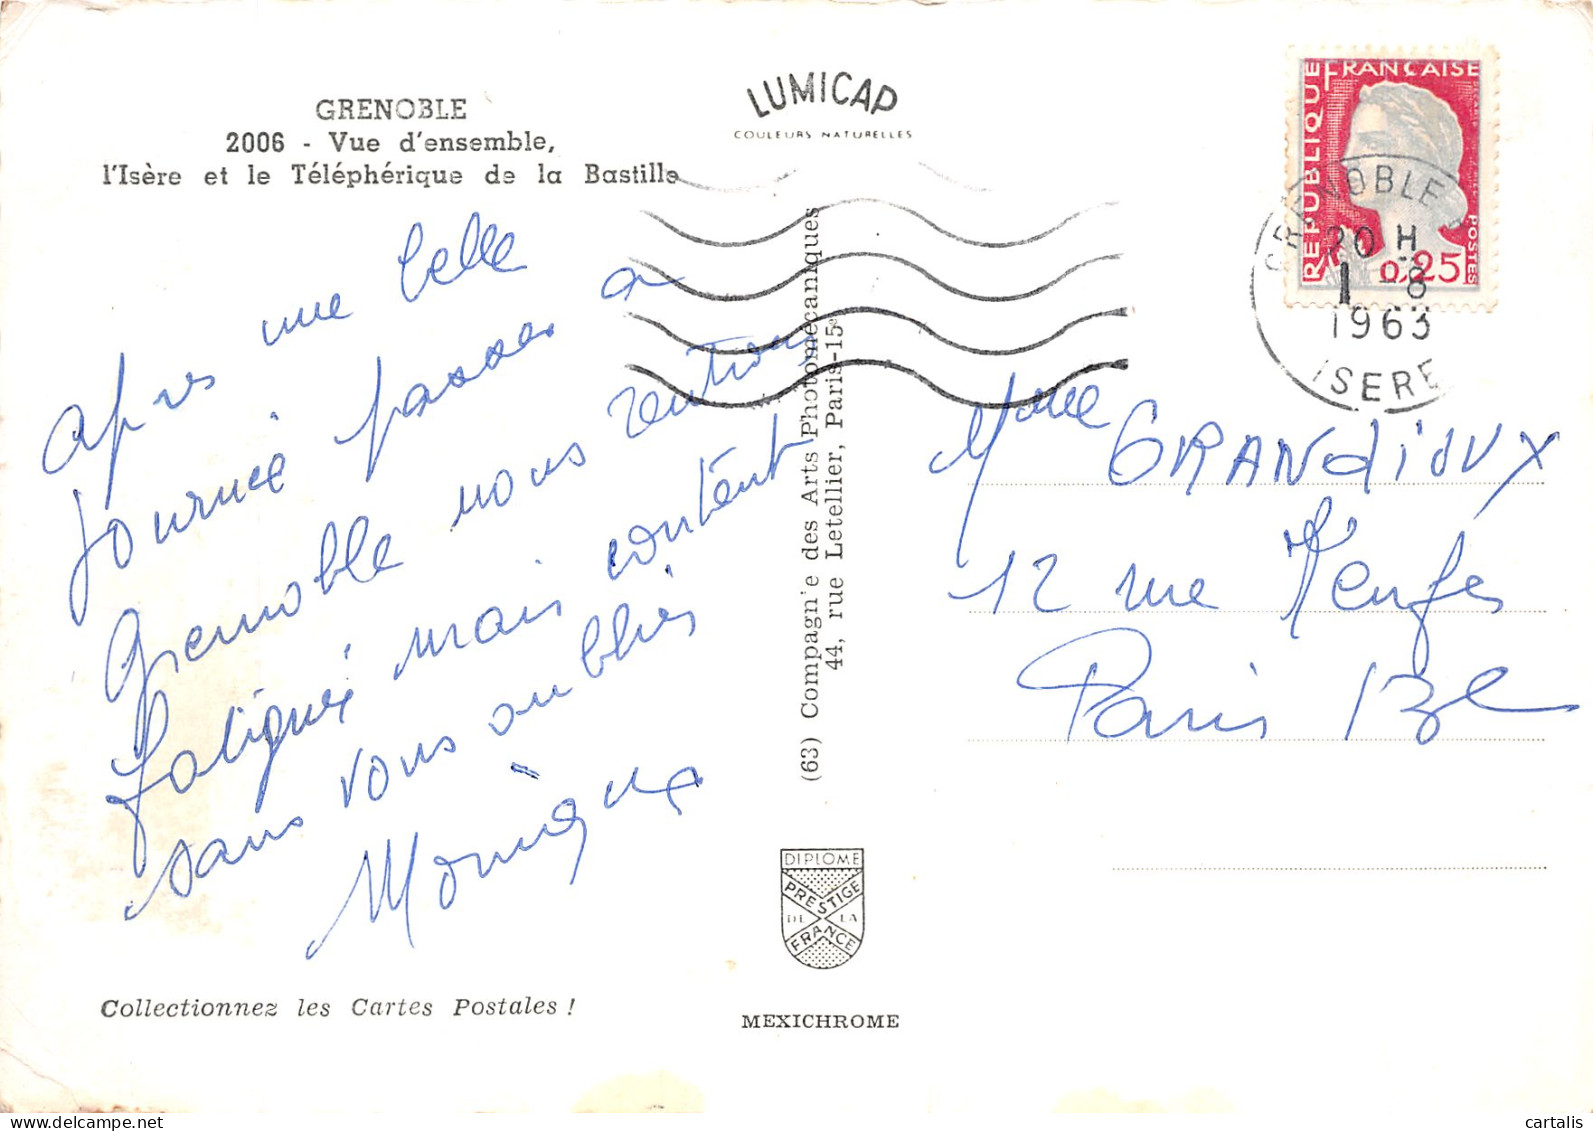 GRENOBLE
2006 - Vue d'ensemble,
l'Isère et le Téléphérique de la Bastille
LUMICAP
COULEURS NATURELLES
REPUBLIQUE FRANÇAISE
POSTES
0,25
GRENOBLE
20 H
1 - 8
1963
ISERE
après une belle
journée passer a
Grenoble nous rentrons
fatigués mais contént
sans vous oubliés
Monique
(63) Compagnie des Arts Photomécaniques
44, rue Letellier, Paris-15e
Mme GRANDiOUX
12 rue
Paris 13e
DIPLOME
PRESTIGE
DE LA
FRANCE
Collectionnez les Cartes Postales !
MEXICHROME
cartalis